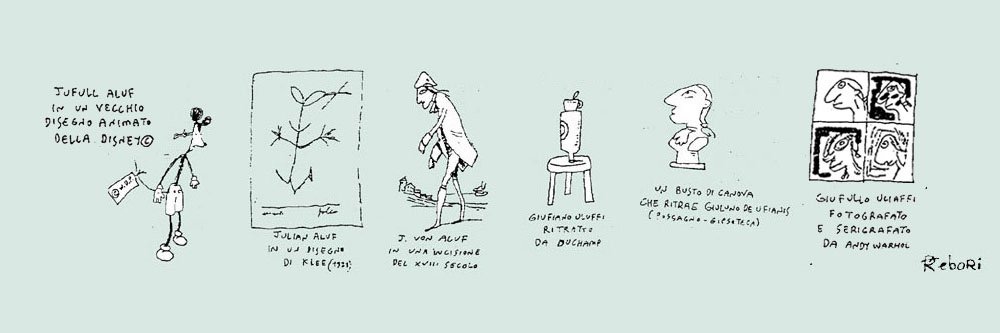 JUFULL ALUF
IN UN VECCHIO
DISEGNO ANIMATO
DELLA DISNEY©
JULIAN ALUF
IN UN DISEGNO
DI KLEE (1921)
J. VON ALUF
IN UNA INCISIONE
DEL XVIII SECOLO
GIUFIANO ULUFFI
RITRATTO
DA DUCHAMP
UN BUSTO DI CANOVA
CHE RITRAE GIULUNO DE UFIANIS
(POSSAGNO - GIPSOTECA)
GIUFULLO ULIAFFI
FOTOGRAFATO
E SERIGRAFATO
DA ANDY WARHOL
Rebori